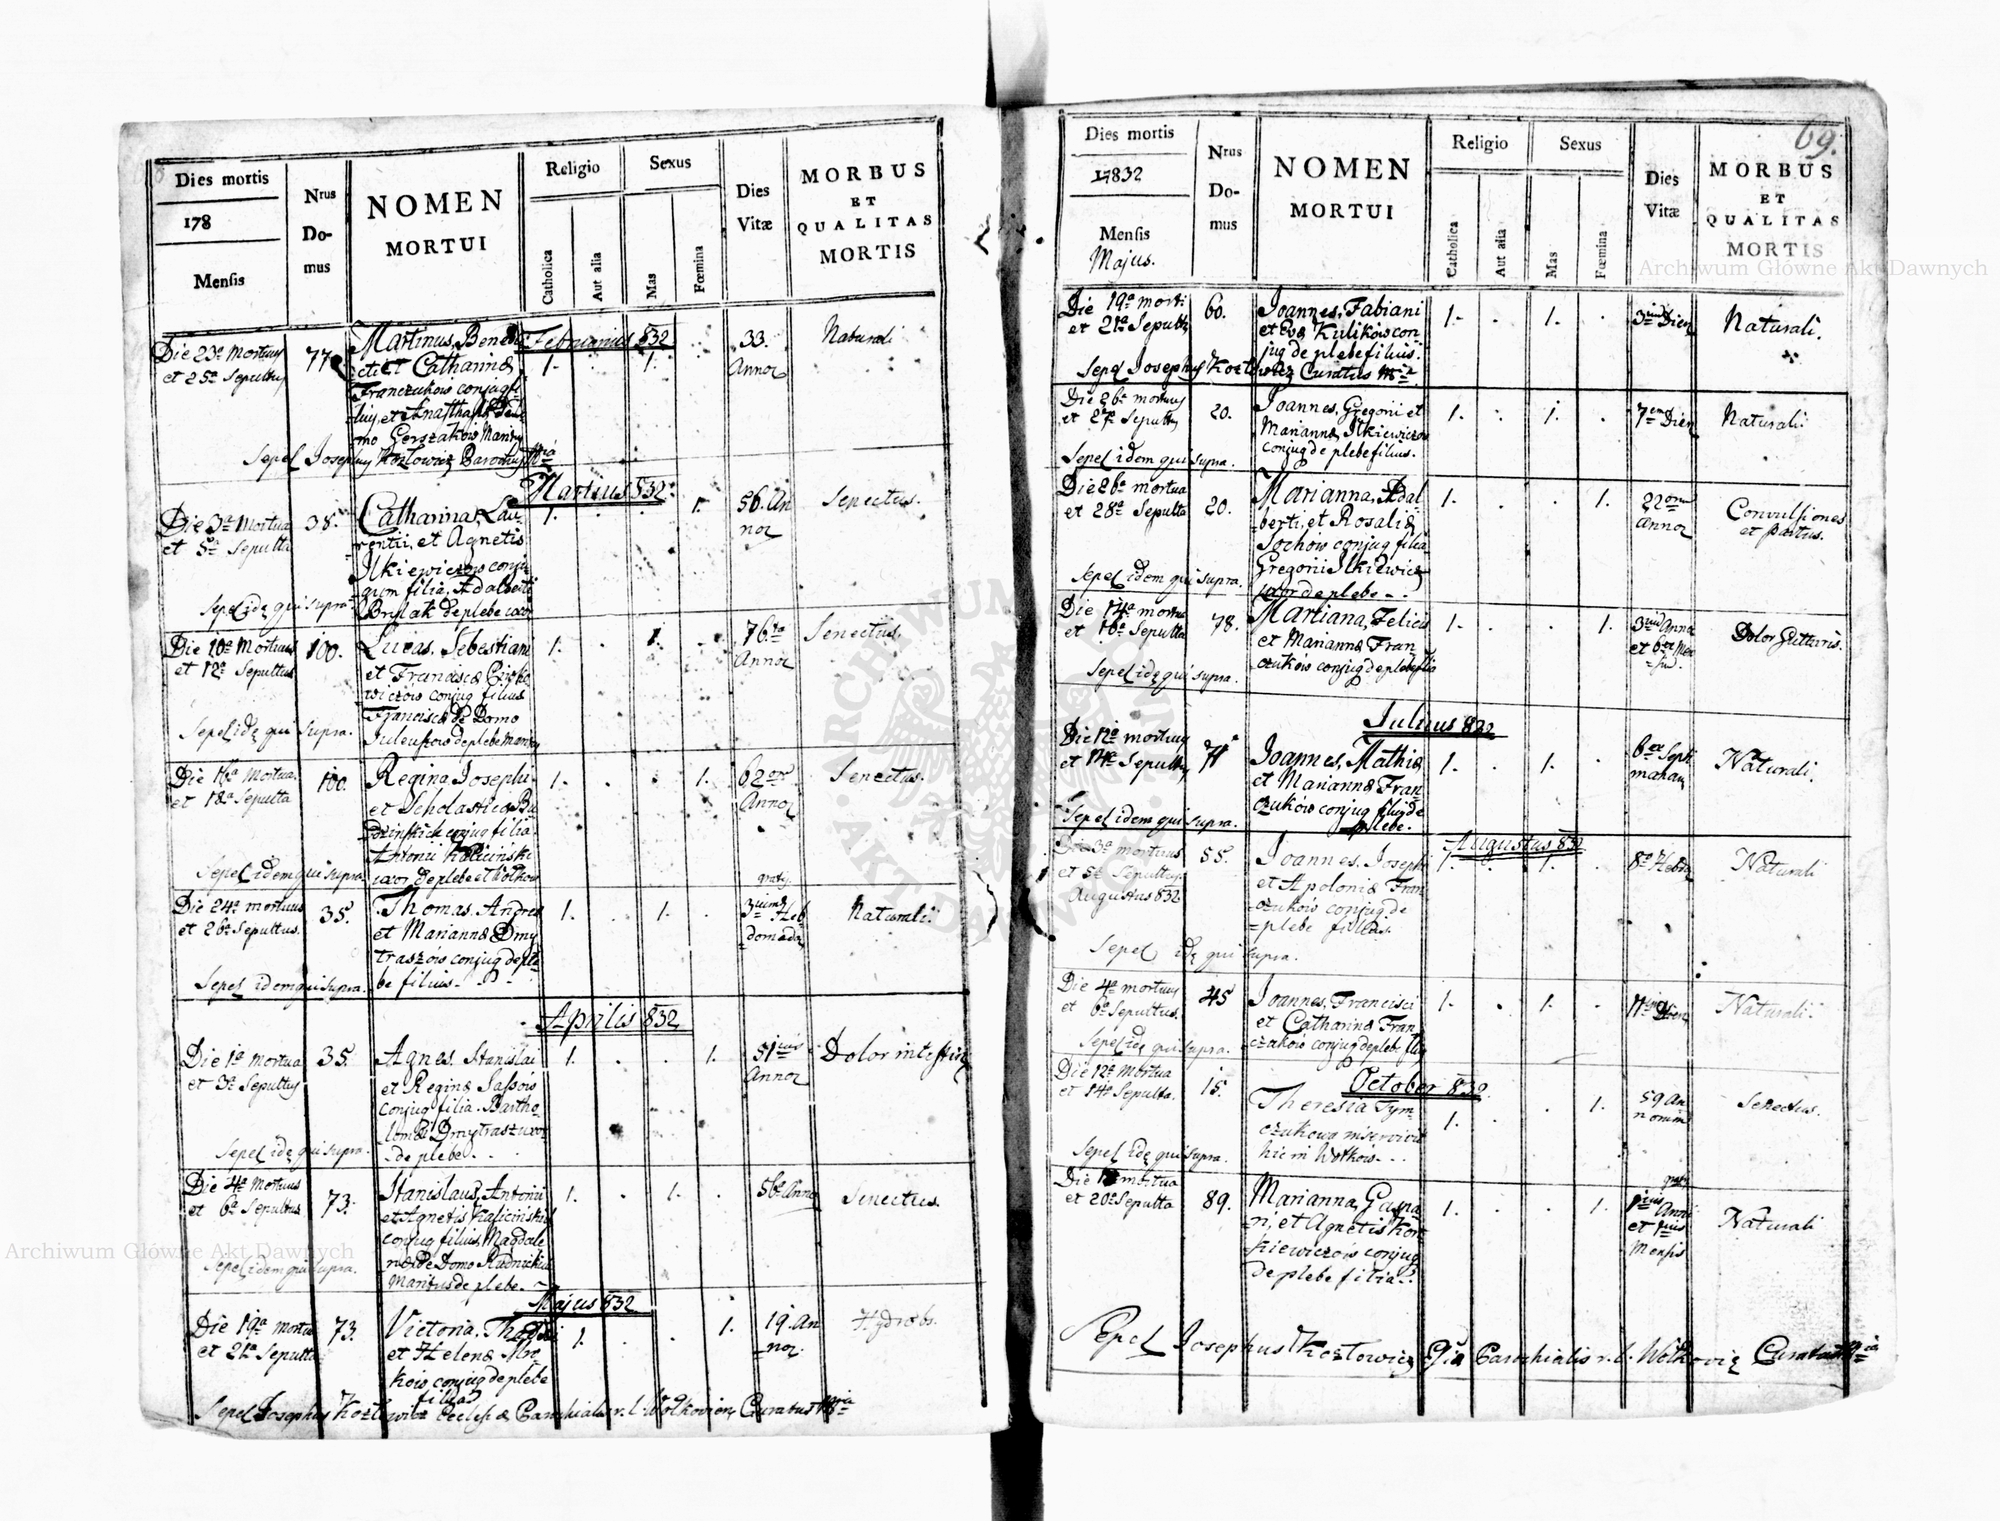 Dies mortis
178
Mensis
Nrus
Do-
mus
NOMEN
MORTUI
Religio
Catholica
Aut alia
Sexus
Mas
Fœmina
Dies
Vitæ
MORBUS
ET
QUALITAS
MORTIS
Februarius 832
Die 23a Mortuus
et 25a Sepultus
77
Martinus, Bene
cti et Catharinæ
Franczukow conjug fi
lius, et
mo Gerszakow Maritus
1.
1.
33.
Annor
Naturali
Sepel Josephus Kozłowicz Parochus
Martius 832.
Die 3a Mortua
et 5a Sepulta
38.
Catharina, Lau-
rentii, et Agnetis
Ilkiewiczow conju-
gum filia, Adalberti
Brylak de plebe uxor
1.
1.
56. An
nor
Senectus.
Sepel idę qui supra.
Die 10a Mortuus
et 12a Sepultus
100.
Lucas, Sebestiani
et Franciscæ
wiczow conjug filius
Franciscæ de Domo
de plebe maritus
1.
1.
76.
Annor
Senectus.
Sepel idę qui supra.
Die 16a Mortua.
et 18a Sepulta
100.
Regina Josephi
et Scholasticæ Bu
dzinskich conjug filia.
Antonii Kaliciński
uxor de plebe
1.
1.
62
Annor
Senectus.
Sepel idem qui supra.
Die 24a mortuus
et 26a Sepultus.
35.
Thomas. Andreæ
et Mariannæ Dmy
traszow conjug de ple-
be filius.
1.
1.
3 Heb
domada
Naturali.
Sepel idem qui supra.
Aprilis 832
Die 1a mortua
et 3a Sepultus
35.
Agnes. Stanislai
et Reginæ Sassow
conjug filia. Bartho-
lomæi Dmytrasz uxor
de plebe.
1.
1.
51
Annor
Dolor intestin
Sepel idę qui supra.
Die 4a Mortuus
et 6a Sepultus
73.
Stanislaus, Antonii
et Agnetis Kalicińskich
conjug filius, Magdale
næ de Domo Rudnickiu
Maritus de plebe.
1.
1.
56. Anno
Senectus.
Sepel idem qui supra.
Majus 832
Die 19a Mortua
et 21a Sepulta
73.
Victoria. Thaddæi
et Helenæ
kow conjug de plebe
filia
1.
1.
19. An
nor.
Sepel Josephus Kozłowicz Eccles æ Parochialis r. l. Wołkovien, Curatus
69.
Dies mortis
17832
Mensis
Majus.
Nrus
Do-
mus
NOMEN
MORTUI
Religio
Catholica
Aut alia
Sexus
Mas
Fœmina
Dies
Vitæ
MORBUS
ET
QUALITAS
MORTIS
Die 19a morti
et 21a Sepultus
60.
Joannes, Fabiani
et Evæ Kulikow con
jug de plebe filius.
1.
1.
3 Dier
Naturali.
Sepel Josephus Kozłowicz Curatus
Die 26a mortuus
et 27a Sepultus
20.
Joannes, Gregorii et
Mariannæ, Ilkiewiczow
conjug de plebe filius.
1.
1.
7 Dier
Naturali.
Sepel idem qui supra.
Die 26a mortua
et 28a Sepulta
20.
Marianna, Adal
berti, et Rosaliæ
Sochow conjug filia
Gregorii Ilkiewicz
uxor de plebe
1.
1.
22
Annor
Convulsiones
et partus.
Sepel idem qui supra.
Die 14a mortua
et 16a Sepulta
78.
Martiana, Felicis
et Mariannæ Fran
czukow conjug de plebe filia
1.
1.
3 Annor
et 6
Dolor Gutturis.
Sepel idę qui supra.
Julius 832
Die 12a mortuus
et 14a Sepultus
71
Joannes, Mathiæ
et Mariannæ Fran-
czukow conjug filius de
plebe.
1.
1.
6 Septi
manar
Naturali.
Sepel idem qui supra.
Augustus 832
Die 3a mortuus
et 5a Sepultus.
Augustus 832
55.
Joannes. Josephi
et Apoloniæ Fran
czukow conjug de
plebe filius.
1.
1.
8 Hebdo
Naturali
Sepel idę qui supra.
Die 4a mortuus
et 6a Sepultus.
45
Joannes, Francisci
et Catharinæ Fran
czukow conjug de plebe filius
1.
1.
Dier
Naturali.
Sepel idę qui supra.
October 832.
Die 12a Mortua
et 14a Sepulta.
15.
Theresia Tym
czukowa
hic in Wołkow
1.
1.
59 An
norum
Senectus.
Sepel idę qui supra.
Die mortua
et 20a Sepulta
89.
Marianna, Gaspa
ri, et Agnetis Kor
kiewiczow conjug
de plebe filia.
1.
1.
Anni
et
Mensis
Naturali
Sepel Josephus Kozłowicz Parochialis r. l. Curatus
Archiwum Główne Akt Dawnych
Archiwum Główne Akt Dawnych
ARCHIWUM GŁÓWNE AKT DAWNYCH